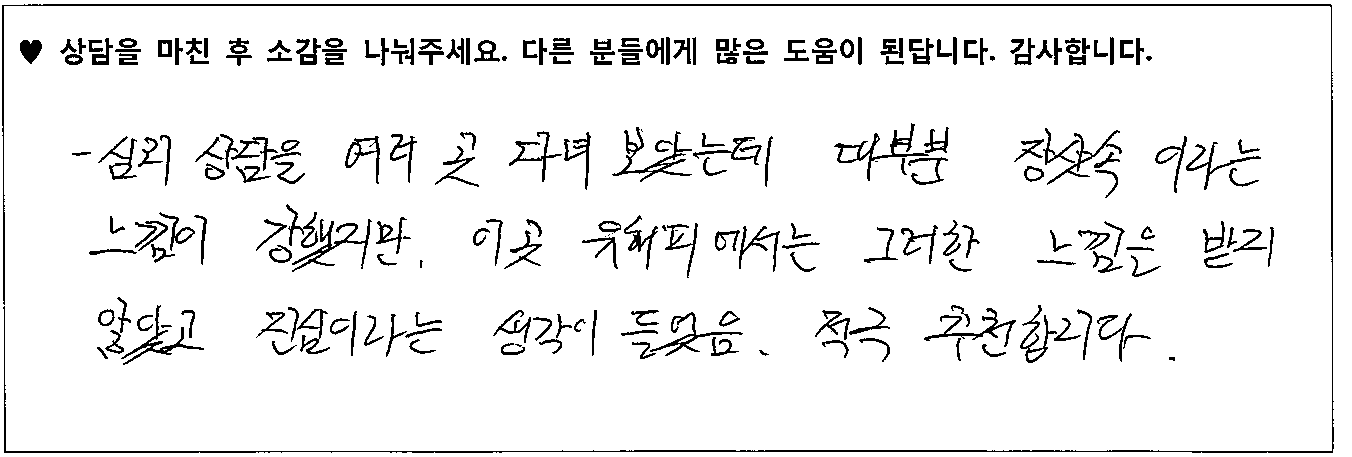 ♥ 상담을 마친 후 소감을 나눠주세요. 다른 분들에게 많은 도움이 된답니다. 감사합니다.
- 심리 상담을 여러 곳 다녀 보았는데 대부분 장삿속 이라는
느낌이 강했지만, 이곳 유해피에서는 그러한 느낌은 받지
않았고 진심이라는 생각이 들었음. 적극 추천합니다.